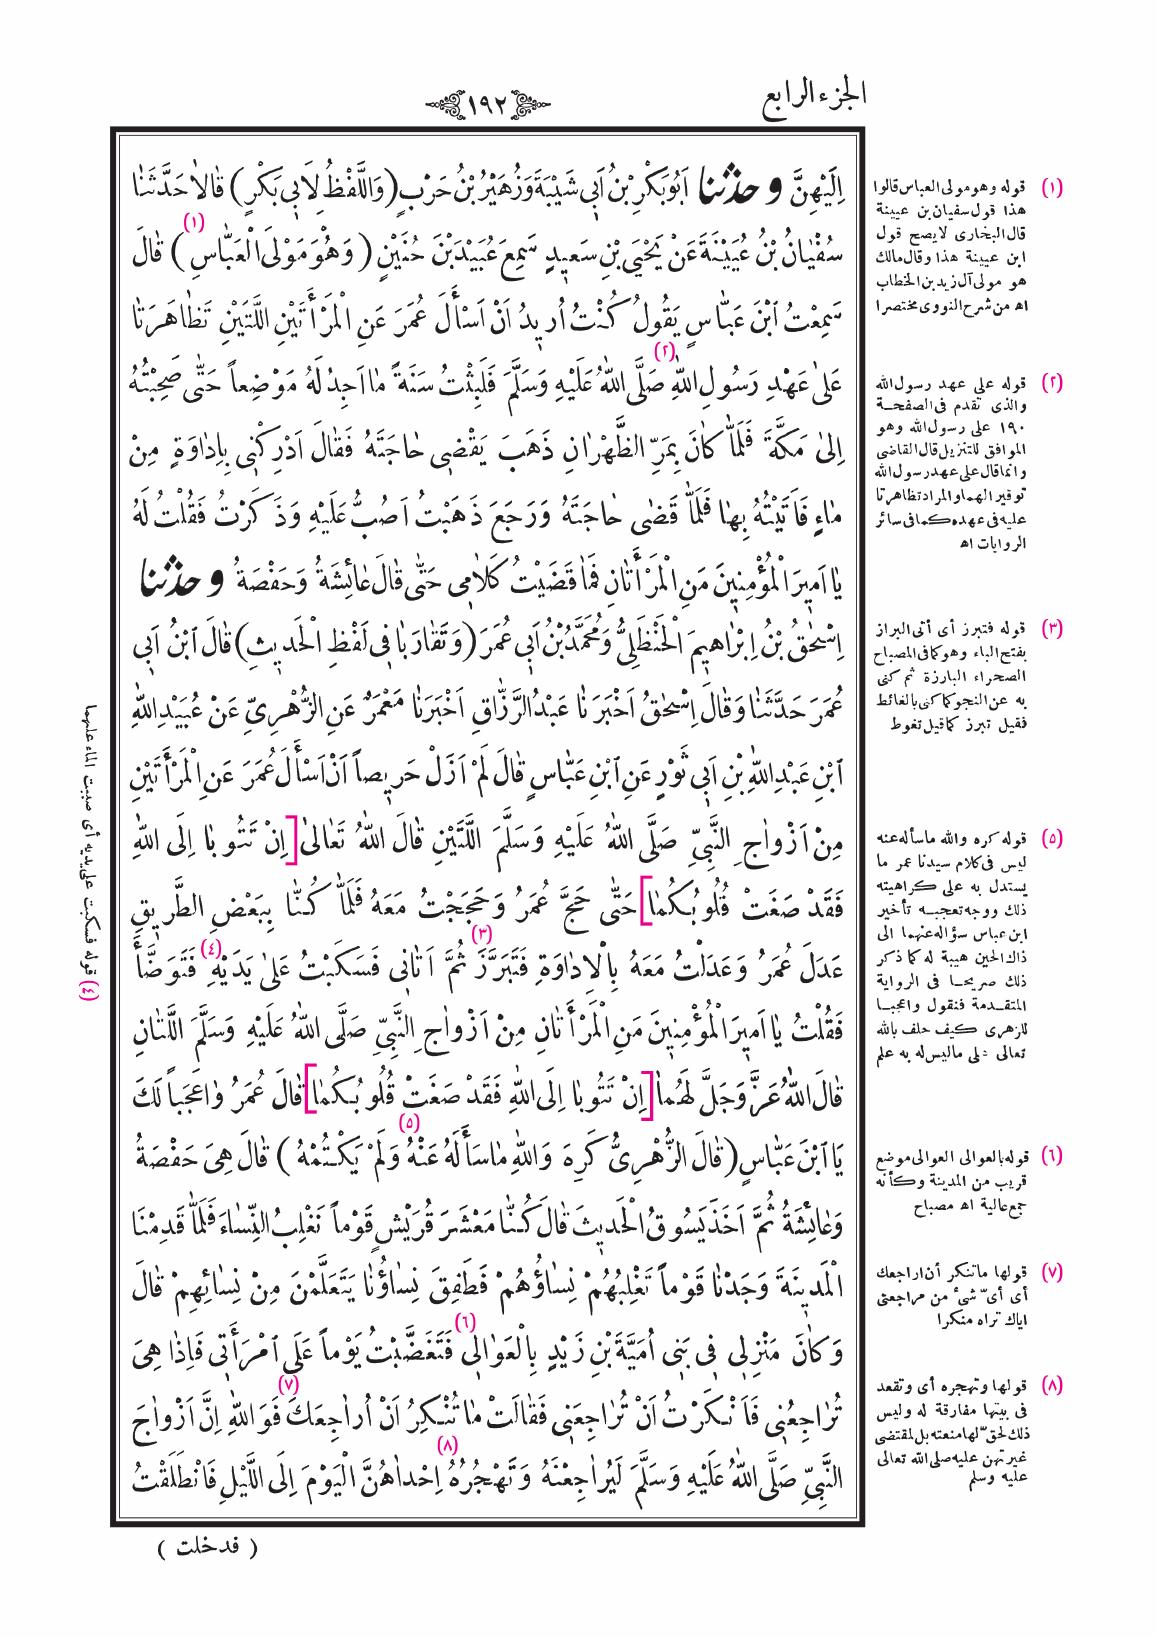 الجزء الرابع
١٩٢
اِلَيْهِنَّ وحدثنا اَبُوبَكْرِ بْنُ اَبِى شَيْبَةَ وَزُهَيْرُ بْنُ حَرْبٍ (وَاللَّفْظُ لِاَبِى بَكْرٍ) قَالَا حَدَّثَنَا
سُفْيَانُ بْنُ عُيَيْنَةَ عَنْ يَحْيَى بْنِ سَعِيدٍ سَمِعَ عُبَيْدَ بْنَ حُنَيْنٍ (وَهُوَ مَوْلَى الْعَبَّاسِ) (١) قَالَ
سَمِعْتُ ابْنَ عَبَّاسٍ يَقُولُ كُنْتُ اُرِيدُ اَنْ اَسْأَلَ عُمَرَ عَنِ الْمَرْأَتَيْنِ اللَّتَيْنِ تَظَاهَرَتَا
عَلىٰ عَهْدِ رَسُولِ اللّٰهِ (٢) صَلَّى اللّٰهُ عَلَيْهِ وَسَلَّمَ فَلَبِثْتُ سَنَةً مَا اَجِدُ لَهُ مَوْضِعاً حَتّٰى صَحِبْتُهُ
اِلىٰ مَكَّةَ فَلَمَّا كَانَ بِمَرِّ الظَّهْرَانِ ذَهَبَ يَقْضِى حَاجَتَهُ فَقَالَ اَدْرِكْنِى بِاِدَاوَةٍ مِنْ
مَاءٍ فَاَتَيْتُهُ بِهَا فَلَمَّا قَضٰى حَاجَتَهُ وَرَجَعَ ذَهَبْتُ اَصُبُّ عَلَيْهِ وَذَكَرْتُ فَقُلْتُ لَهُ
يَا اَمِيرَ الْمُؤْمِنِينَ مَنِ الْمَرْأَتَانِ فَمَا قَضَيْتُ كَلَامِى حَتّٰى قَالَ عَائِشَةُ وَحَفْصَةُ وحدثنا
اِسْحٰقُ بْنُ اِبْرَاهِيمَ الْحَنْظَلِىُّ وَمُحَمَّدُ بْنُ اَبِى عُمَرَ (وَتَقَارَبَا فِى لَفْظِ الْحَدِيثِ) قَالَ ابْنُ اَبِى
عُمَرَ حَدَّثَنَا وَقَالَ اِسْحٰقُ اَخْبَرَنَا عَبْدُ الرَّزَّاقِ اَخْبَرَنَا مَعْمَرٌ عَنِ الزُّهْرِىِّ عَنْ عُبَيْدِ اللّٰهِ
ابْنِ عَبْدِ اللّٰهِ بْنِ اَبِى ثَوْرٍ عَنِ ابْنِ عَبَّاسٍ قَالَ لَمْ اَزَلْ حَرِيصاً اَنْ اَسْأَلَ عُمَرَ عَنِ الْمَرْأَتَيْنِ
مِنْ اَزْوَاجِ النَّبِىِّ صَلَّى اللّٰهُ عَلَيْهِ وَسَلَّمَ اللَّتَيْنِ قَالَ اللّٰهُ تَعَالىٰ [اِنْ تَتُوبَا اِلَى اللّٰهِ
فَقَدْ صَغَتْ قُلُوبُكُمَا] حَتّٰى حَجَّ عُمَرُ وَحَجَجْتُ مَعَهُ فَلَمَّا كُنَّا بِبَعْضِ الطَّرِيقِ
عَدَلَ عُمَرُ وَعَدَلْتُ مَعَهُ بِالْاِدَاوَةِ فَتَبَرَّزَ (٣) ثُمَّ اَتَانِى فَسَكَبْتُ عَلىٰ يَدَيْهِ (٤) فَتَوَضَّأَ
فَقُلْتُ يَا اَمِيرَ الْمُؤْمِنِينَ مَنِ الْمَرْأَتَانِ مِنْ اَزْوَاجِ النَّبِىِّ صَلَّى اللّٰهُ عَلَيْهِ وَسَلَّمَ اللَّتَانِ
قَالَ اللّٰهُ عَزَّ وَجَلَّ لَهُمَا [اِنْ تَتُوبَا اِلَى اللّٰهِ فَقَدْ صَغَتْ قُلُوبُكُمَا] قَالَ عُمَرُ وَاعَجَباً لَكَ
يَا ابْنَ عَبَّاسٍ (قَالَ الزُّهْرِىُّ كَرِهَ وَاللّٰهِ مَا سَأَلَهُ (٥) عَنْهُ وَلَمْ يَكْتُمْهُ) قَالَ هِىَ حَفْصَةُ
وَعَائِشَةُ ثُمَّ اَخَذَ يَسُوقُ الْحَدِيثَ قَالَ كُنَّا مَعْشَرَ قُرَيْشٍ قَوْماً نَغْلِبُ النِّسَاءَ فَلَمَّا قَدِمْنَا
الْمَدِينَةَ وَجَدْنَا قَوْماً تَغْلِبُهُمْ نِسَاؤُهُمْ فَطَفِقَ نِسَاؤُنَا يَتَعَلَّمْنَ مِنْ نِسَائِهِمْ قَالَ
وَكَانَ مَنْزِلِى فِى بَنِى اُمَيَّةَ بْنِ زَيْدٍ بِالْعَوَالِى (٦) فَتَغَضَّبْتُ يَوْماً عَلَى امْرَأَتِى فَاِذَا هِىَ
تُرَاجِعُنِى فَاَنْكَرْتُ اَنْ تُرَاجِعَنِى فَقَالَتْ مَا تُنْكِرُ اَنْ اُرَاجِعَكَ (٧) فَوَاللّٰهِ اِنَّ اَزْوَاجَ
النَّبِىِّ صَلَّى اللّٰهُ عَلَيْهِ وَسَلَّمَ لَيُرَاجِعْنَهُ وَتَهْجُرُهُ (٨) اِحْدَاهُنَّ الْيَوْمَ اِلَى اللَّيْلِ فَانْطَلَقْتُ
( فدخلت )
(١) قوله وهو مولى العباس قالوا
هذا قول سفيان بن عيينة
قال البخارى لا يصح قول
ابن عيينة هذا وقال مالك
هو مولى آل زيد بن الخطاب
اه من شرح النووى مختصرا
(٢) قوله على عهد رسول الله
والذى تقدم فى الصفحة
١٩٠ على رسول الله وهو
الموافق للتنزيل قال القاضى
وانما قال على عهد رسول الله
توقير الهما والمراد تظاهرتا
عليه فى عهده كما فى سائر
الروايات اه
(٣) قوله فتبرز أى أتى البراز
بفتح الباء وهو كما فى المصباح
الصحراء البارزة ثم كنى
به عن النجو كما كنى بالغائط
فقيل تبرز كما قيل تغوط
(٥) قوله كره والله ماسأله عنه
ليس فى كلام سيدنا عمر ما
يستدل به على كراهيته
ذلك ووجه تعجبه تأخير
ابن عباس سؤاله عنهما الى
ذاك الحين هيبة له كما ذكر
ذلك صريحا فى الرواية
المتقدمة فنقول واعجبا
للزهرى كيف حلف بالله
تعالى على ما ليس له به علم
(٦) قوله بالعوالى العوالى موضع
قريب من المدينة وكأنه
جمع عالية اه مصباح
(٧) قولها ماتنكر أن اراجعك
أى أىّ شىٔ من مراجعتى
اياك تراه منكرا
(٨) قولها وتهجره أى وتقعد
فى بيتها مفارقة له وليس
ذلك لحقّ لها منعته بل لمقتضى
غيرتهن عليه صلى الله تعالى
عليه وسلم
(٤) قوله فسكبت على يديه أى صببت الماء عليهما